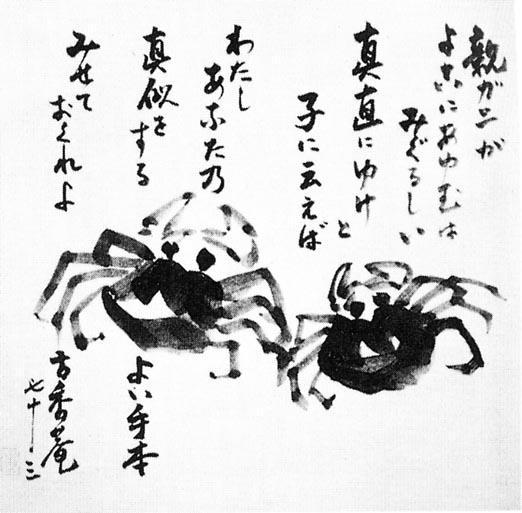 親がニが
よこにあゆむは
みぐるしい
真直にゆけと
子に云えば
わたし
あなた乃
真似をする
みせて
おくれよ
よい手本
古香庵
七十二